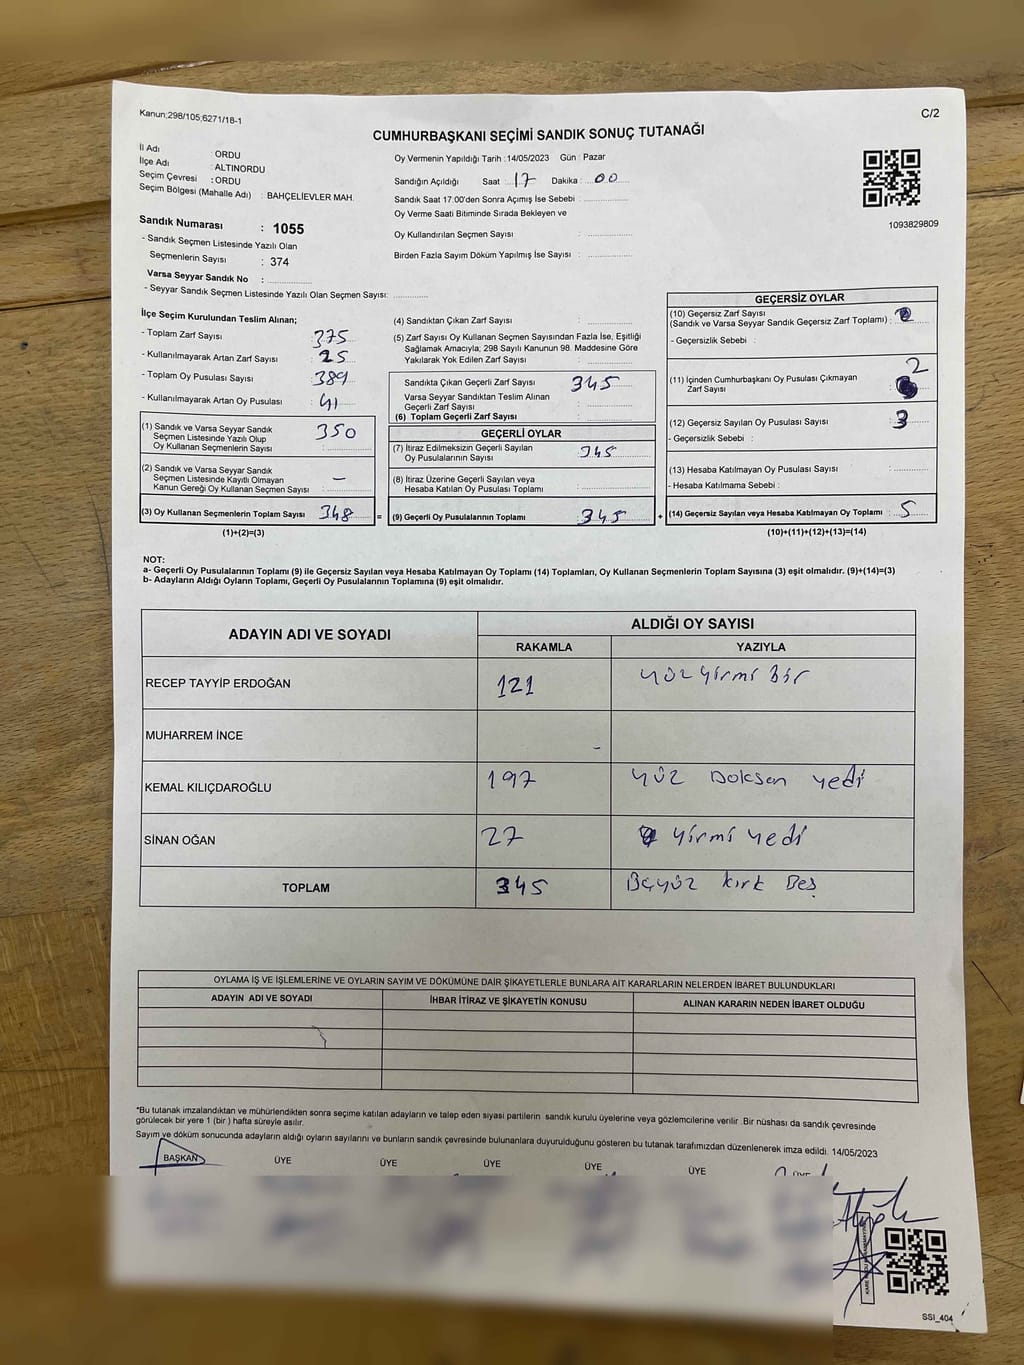 Kanun;298/105;6271/18-1
C/2
CUMHURBAŞKANI SEÇİMİ SANDIK SONUÇ TUTANAĞI
İl Adı : ORDU
İlçe Adı : ALTINORDU
Seçim Çevresi : ORDU
Seçim Bölgesi (Mahalle Adı) : BAHÇELİEVLER MAH.
Sandık Numarası : 1055
- Sandık Seçmen Listesinde Yazılı Olan
Seçmenlerin Sayısı : 374
Varsa Seyyar Sandık No :
- Seyyar Sandık Seçmen Listesinde Yazılı Olan Seçmen Sayısı:
Oy Vermenin Yapıldığı Tarih :14/05/2023 Gün : Pazar
Sandığın Açıldığı Saat : 17 Dakika : 00
Sandık Saat 17:00'den Sonra Açımış İse Sebebi :
Oy Verme Saati Bitiminde Sırada Bekleyen ve
Oy Kullandırılan Seçmen Sayısı :
Birden Fazla Sayım Döküm Yapılmış İse Sayısı :
1093829809
İlçe Seçim Kurulundan Teslim Alınan;
- Toplam Zarf Sayısı : 375
- Kullanılmayarak Artan Zarf Sayısı : 25
- Toplam Oy Pusulası Sayısı : 389
- Kullanılmayarak Artan Oy Pusulası : 41
(1) Sandık ve Varsa Seyyar Sandık
Seçmen Listesinde Yazılı Olup
Oy Kullanan Seçmenlerin Sayısı : 350
(2) Sandık ve Varsa Seyyar Sandık
Seçmen Listesinde Kayıtlı Olmayan
Kanun Gereği Oy Kullanan Seçmen Sayısı : –
(3) Oy Kullanan Seçmenlerin Toplam Sayısı : 348 =
(1)+(2)=(3)
(4) Sandıktan Çıkan Zarf Sayısı :
(5) Zarf Sayısı Oy Kullanan Seçmen Sayısından Fazla İse, Eşitliği
Sağlamak Amacıyla; 298 Sayılı Kanunun 98. Maddesine Göre
Yakılarak Yok Edilen Zarf Sayısı :
Sandıkta Çıkan Geçerli Zarf Sayısı : 345
Varsa Seyyar Sandıktan Teslim Alınan
Geçerli Zarf Sayısı :
(6) Toplam Geçerli Zarf Sayısı :
GEÇERLİ OYLAR
(7) İtiraz Edilmeksizin Geçerli Sayılan
Oy Pusulalarının Sayısı : 345
(8) İtiraz Üzerine Geçerli Sayılan veya
Hesaba Katılan Oy Pusulası Toplamı :
(9) Geçerli Oy Pusulalarının Toplamı : 345 +
GEÇERSİZ OYLAR
(10) Geçersiz Zarf Sayısı
(Sandık ve Varsa Seyyar Sandık Geçersiz Zarf Toplamı) :
- Geçersizlik Sebebi :
(11) İçinden Cumhurbaşkanı Oy Pusulası Çıkmayan
Zarf Sayısı : 2
(12) Geçersiz Sayılan Oy Pusulası Sayısı : 3
- Geçersizlik Sebebi :
(13) Hesaba Katılmayan Oy Pusulası Sayısı :
- Hesaba Katılmama Sebebi :
(14) Geçersiz Sayılan veya Hesaba Katılmayan Oy Toplamı : 5
(10)+(11)+(12)+(13)=(14)
NOT:
a- Geçerli Oy Pusulalarının Toplamı (9) ile Geçersiz Sayılan veya Hesaba Katılmayan Oy Toplamı (14) Toplamları, Oy Kullanan Seçmenlerin Toplam Sayısına (3) eşit olmalıdır. (9)+(14)=(3)
b- Adayların Aldığı Oyların Toplamı, Geçerli Oy Pusulalarının Toplamına (9) eşit olmalıdır.
ADAYIN ADI VE SOYADI
ALDIĞI OY SAYISI
RAKAMLA YAZIYLA
RECEP TAYYİP ERDOĞAN 121 yüz yirmi bir
MUHARREM İNCE -
KEMAL KILIÇDAROĞLU 197 yüz Doksan yedi
SİNAN OĞAN 27 yirmi yedi
TOPLAM 345 Üçyüz kırk Beş
OYLAMA İŞ VE İŞLEMLERİNE VE OYLARIN SAYIM VE DÖKÜMÜNE DAİR ŞİKAYETLERLE BUNLARA AİT KARARLARIN NELERDEN İBARET BULUNDUKLARI
ADAYIN ADI VE SOYADI İHBAR İTİRAZ VE ŞİKAYETİN KONUSU ALINAN KARARIN NEDEN İBARET OLDUĞU
*Bu tutanak imzalandıktan ve mühürlendikten sonra seçime katılan adayların ve talep eden siyasi partilerin sandık kurulu üyelerine veya gözlemcilerine verilir .Bir nüshası da sandık çevresinde
görülecek bir yere 1 (bir ) hafta süreyle asılır.
Sayım ve döküm sonucunda adayların aldığı oyların sayılarını ve bunların sandık çevresinde bulunanlara duyurulduğunu gösteren bu tutanak tarafımızdan düzenlenerek imza edildi. 14/05/2023
BAŞKAN ÜYE ÜYE ÜYE ÜYE ÜYE
SSI_404